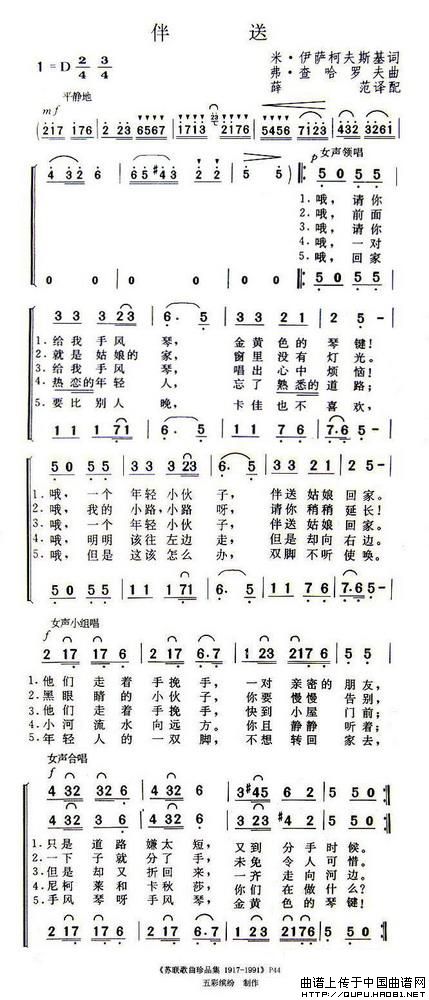 伴 送
1=D 2/4 3/4
米·伊萨柯夫斯基词
弗·查哈罗夫曲
薛 范译配
平静地
mf
217 176 | 2 23 6567 | 1713 2176 | 5456 7123 | 432 3261
p 女声领唱
4 32 6 | 65 #43 2 2 | 5 5 | 50 55
1.哦，请你
2.哦，前面
3.哦，请你
4.哦，一对
5.哦，回家
0 0 0 0 0 0 0 50 55
33 3 23 | 6· 5 | 33 221 | 2 5 -
1.给我手风琴， 金黄色的琴键！
2.就是姑娘的家， 窗里没有灯光。
3.给我手风琴， 唱出心中烦恼！
4.热恋的年轻人， 忘了熟悉的道路；
5.要比别人晚， 卡佳也不喜欢，
11 1 71 | 6· 5 | 11 1 76 | 7·6 5 -
50 55 | 33 3 23 | 6· 5 | 33 221 | 2 5 -
1.哦，一个年轻小伙子， 伴送姑娘回家。
2.哦，我的小路，小路呀， 请你稍稍延长！
3.哦，一个年轻小伙子， 伴送姑娘回家。
4.哦，明明该往左边走， 但是却向右边。
5.哦，但是这该怎么办， 双脚不听使唤。
50 55 | 11 1 71 | 6· 5 | 11 1 76 | 7·6 5 -
女声小组唱
f
2 17 17 6 | 2 17 6·7 | 1 23 2176 | 5 5
1.他们走着手挽手， 一对亲密的朋友，
2.黑眼睛的小伙子， 你要慢慢告别，
3.他们走着手挽手， 快到小屋门前；
4.小河流水向远方。 你且静静听着；
5.年轻人的一双脚， 不想转回家去，
女声合唱
f
4 32 32 6 | 4 32 6 | 3 #45 6 2 | 5 5
2 17 17 6 | 2 17 6 | 1 23 2 #4 | 5 5
1.只是道路嫌太短， 又到分手时候。
2.一下子就分了手， 未免令人可惜。
3.但是却又折回来， 一齐走向河边。
4.尼柯莱和卡秋莎， 你们在做什么？
5.手风琴呀手风琴， 金黄色的琴键！
2 17 17 6 | 2 17 6·7 | 1 23 2176 | 5 5
《苏联歌曲珍品集 1917-1991》P44
五彩缤纷 制作
曲谱上传于中国曲谱网
HTTP://QUPU.HAO81.NET